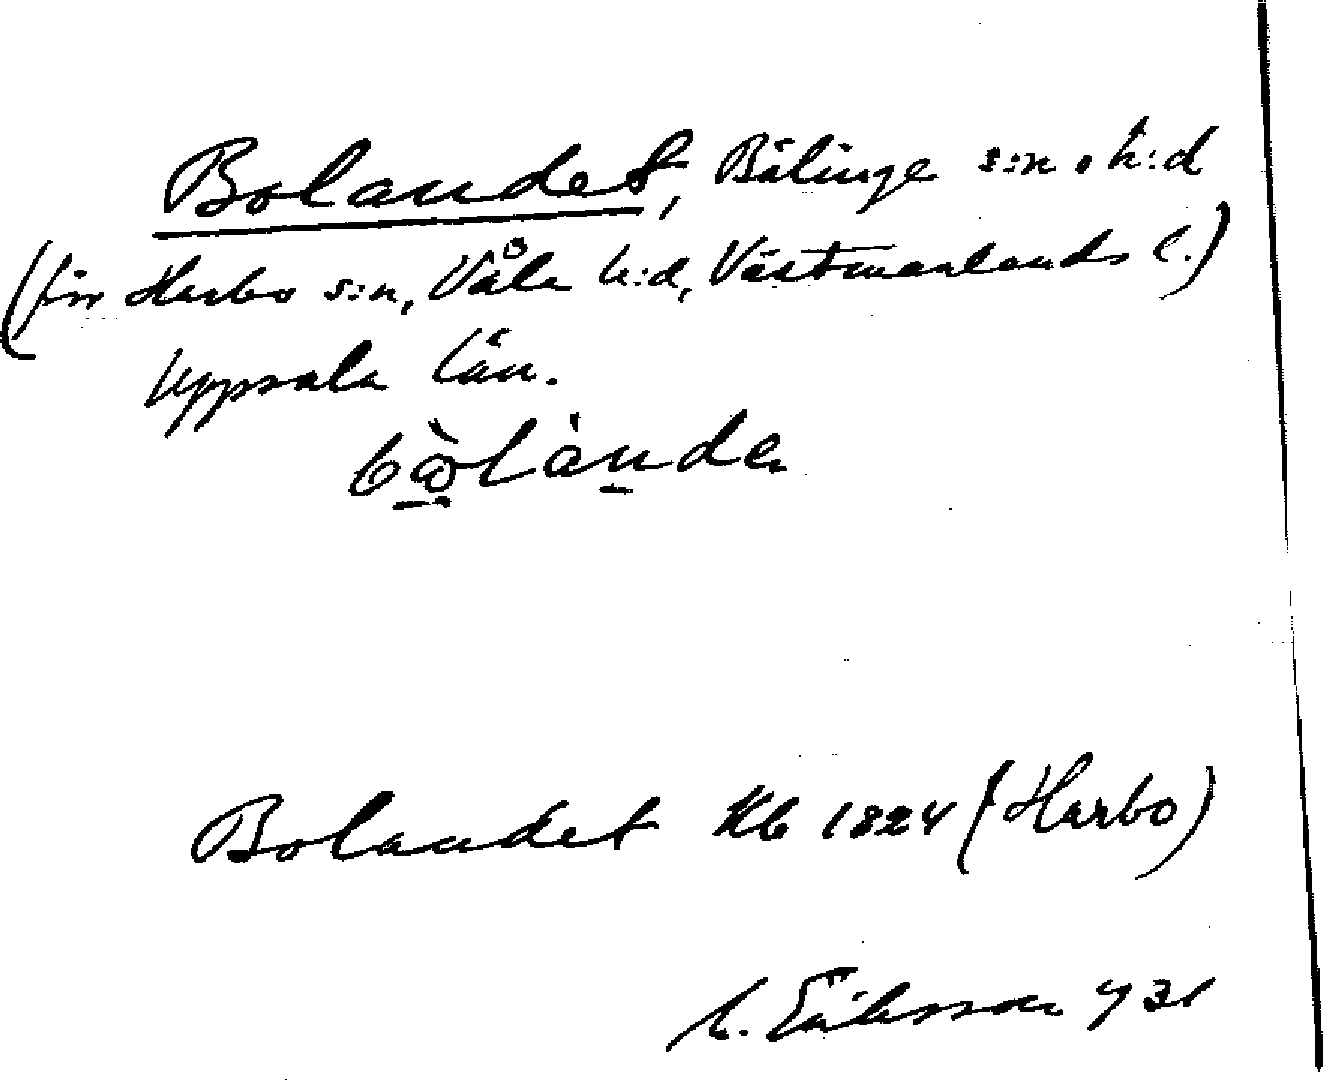 Bolandet, Bälinge s:n o h:d
(förr Harbo s:n, Våla h:d, Västmanlands l.)
Uppsala län.
Bolandet Kb 1824 (Harbo)
Eriksson